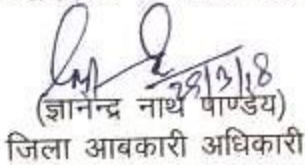 28/3/18
(ज्ञानेन्द्र नाथ पाण्डेय)
जिला आबकारी अधिकारी